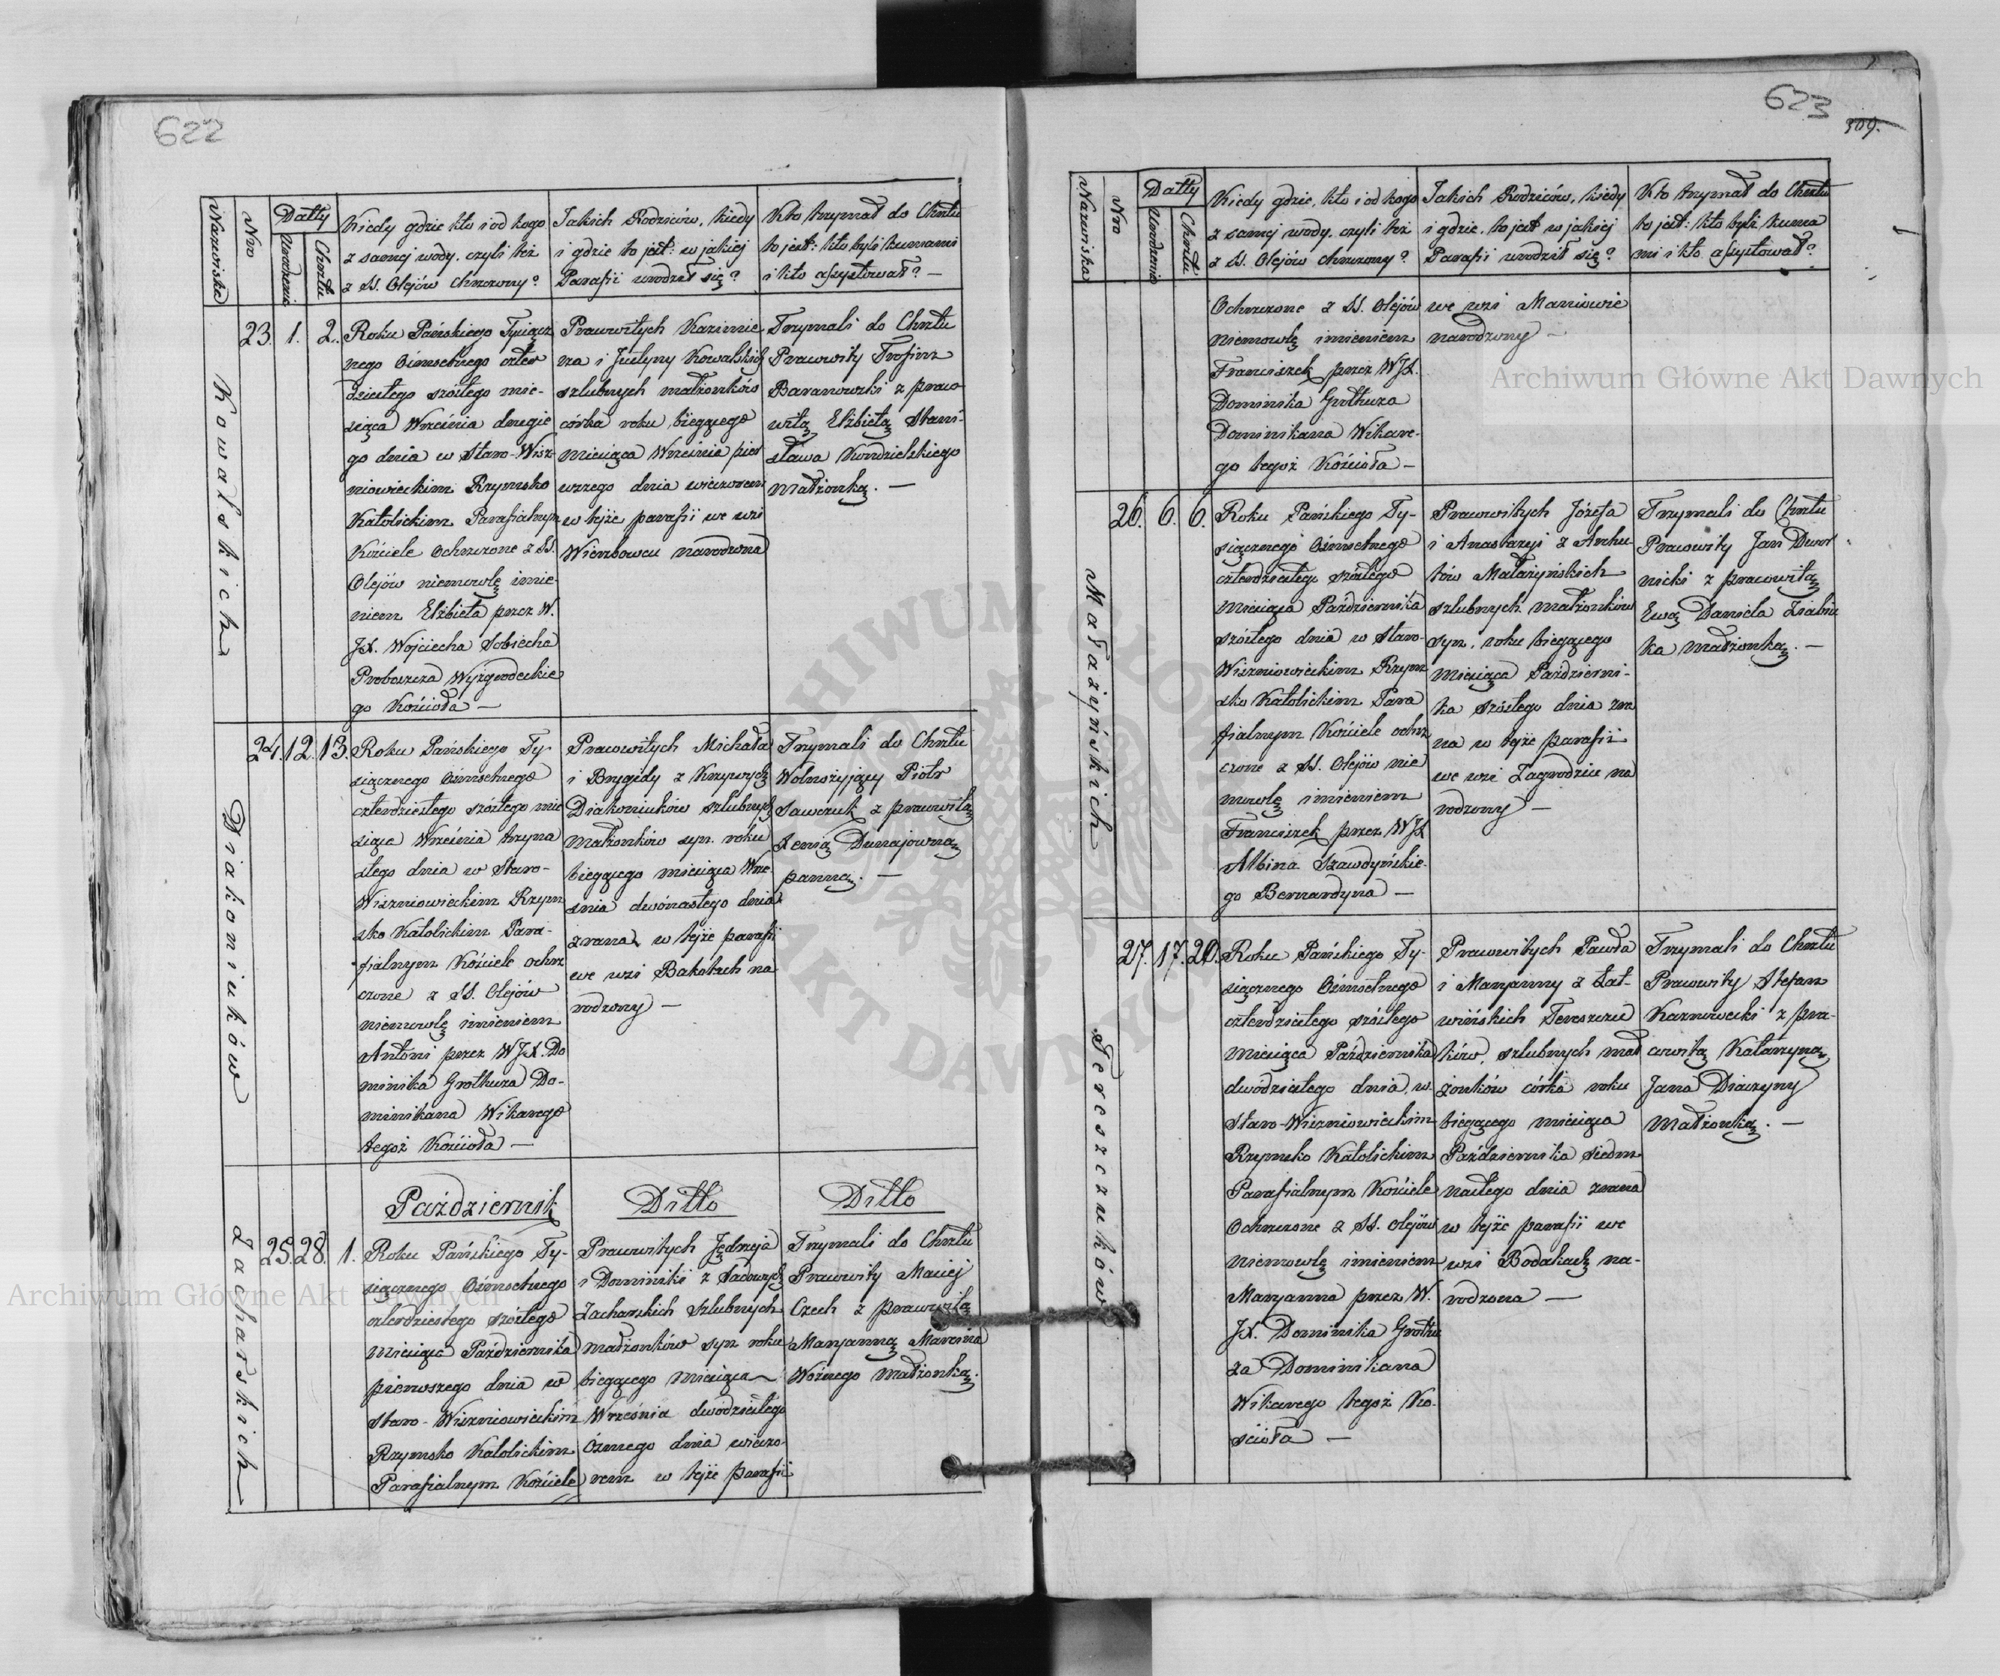 622
Nazwiska
Nro
Datty
Urodzenia
Chrztu
Kiedy gdzie kto i od kogo
z samej wody, czyli też
z SS. Olejów chrzczony?
Jakich Rodziców, kiedy
i gdzie to jest: w jakiej
Parafii urodził się?
Kto trzymał do Chrztu
to jest: kto byli kumami
i kto assystował? —
Kowalskich
23. 1. 2.
Roku Pańskiego Tysiącz
nego Ośmsetnego czter
dziestego szóstego mie-
siąca Września drugie
go dnia w Staro-Wisz-
niowieckim Rzymsko
Katolickim Parafialnym
Kościele Ochrzczone z SS.
Olejów niemowlę imie-
niem Elżbieta przez W.
JX. Wojciecha Sobiecha
Proboszcza Wyżgrodeckie
go Kościoła —
Prawowitych Kazimie
rza i Justyny Kowalskich
szlubnych małżonków
córka roku bieżącego
Miesiąca Września pier
wszego dnia wieczorem
w tejże parafii we wsi
Wierzbowcu narodzona
Trzymali do Chrztu
Pracowity Trofim
Baranowski z praco
witą Elżbietą Stani-
sława Kondzielskiego
Małżonką. —
Diakoniuków
24. 12. 13.
Roku Pańskiego Ty-
siącznego Ośmsetnego
czterdziestego szóstego mie
siąca Września trzyna
stego dnia w Staro-
Wiszniowieckim Rzym
sko Katolickim Para-
fialnym Kościele ochrz
czone z SS. Olejów
niemowlę imieniem
Antoni przez WJX. Do
minika Grothuza Do-
minikana Wikarego
tegoż Kościoła —
Pracowitych Michała
i Brygidy z Krzywych
Diakoniuków szlubnych
małżonków syn roku
bieżącego miesiąca Wrze-
śnia dwónastego dnia
zrana w tejże parafii
we wsi Bakotach na
rodzony —
Trzymali do Chrztu
Wolnożyjący Piotr
Sawczuk z pracowitą
Zenią Dunajowną
panną. —
Październik
Ditto
Ditto
Zacharskich
25. 28. 1.
Roku Pańskiego Ty-
siącznego Ośmsetnego
czterdziestego szóstego
Miesiąca Października
pierwszego dnia w
Staro-Wiszniowieckim
Rzymsko Katolickim
Parafialnym Kościele
Pracowitych Jędrzeja
i Dominiki z Sadowych
Zacharskich szlubnych
małżonków syn roku
bieżącego Miesiąca
Września dwódziestego
Ósmego dnia wieczo-
rem w tejże parafii
Trzymali do Chrztu
Pracowity Maciej
Czech z pracowitą
Maryanną Marcina
Woźnego małżonką.
623
309.
Nazwiska
Nro
Datty
Urodzenia
Chrztu
Kiedy gdzie, kto i od kogo
z samej wody, czyli też
z SS. Olejów chrzczony?
Jakich Rodziców, kiedy
i gdzie, to jest w jakiej
Parafii urodził się?
Kto trzymał do Chrztu
to jest: kto byli kuma
mi i kto assystował?
Ochrzczone z SS. Olejów
niemowlę imieniem
Franciszek przez WJX.
Dominika Grothuza
Dominikana Wikare-
go tegoż Kościoła —
we wsi Maniowie
narodzony —
Małażyńskich
26. 6. 6.
Roku Pańskiego Ty-
siącznego Ośmsetnego
czterdziestego szóstego
Miesiąca Października
szóstego dnia w Staro-
Wiszniowieckim Rzym
sko Katolickim Para
fialnym Kościele ochrz
czone z SS. Olejów nie
mowlę imieniem
Franciszek przez WJX
Albina Szawdyńskie-
go Bernardyna —
Prawowitych Józefa
i Anastazyi z Arthu
tów Małażyńskich
szlubnych małżonków
syn, roku bieżącego
Miesiąca Październi-
ka szóstego dnia zra
na w tejże parafii
we wsi Zagrodzie na
rodzony —
Trzymali do Chrztu
Pracowity Jan Dwor
nicki z pracowitą
Ewą Daniela Ziabru
ka małżonką. —
Tereszczuków
27. 17. 20.
Roku Pańskiego Ty-
siącznego Ośmsetnego
czterdziestego szóstego
Miesiąca Października
dwódziestego dnia, w
Staro-Wiszniowieckim
Rzymsko Katolickim
Parafialnym Kościele
Ochrzczone z SS. Olejów
Niemowlę imieniem
Maryanna przez W.
JX. Dominika Grothu
za Dominikana
Wikarego tegoż Ko-
ścioła —
Prawowitych Pawła
i Maryanny z Łat-
wińskich Tereszczu
ków, szlubnych mał
żonków córka roku
bieżącego miesiąca
Października siedm
nastego dnia zrana
w tejże parafii we
wsi Bodakach na-
rodzona —
Trzymali do Chrztu
Pracowity Stefan
Kaznowiecki z pra-
cowitą Katarzyną
Jana Diaczyny
Małżonką. —
Archiwum Główne Akt Dawnych
Archiwum Główne Akt Dawnych
ARCHIWUM GŁÓWNE AKT DAWNYCH